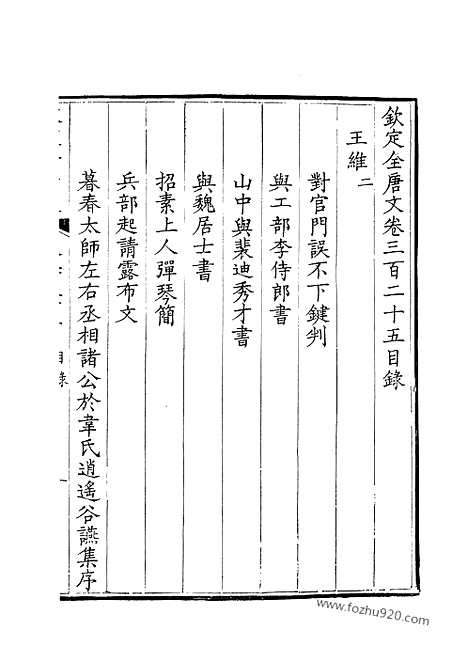 欽定全唐文卷三百二十五目錄
王維二
對官門誤不下鍵判
與工部李侍郎書
山中與裴迪秀才書
與魏居士書
招素上人彈琴簡
兵部起請露布文
暮春太師左右丞相諸公於韋氏逍遙谷讌集序
目錄
一
www.fozhu920.com